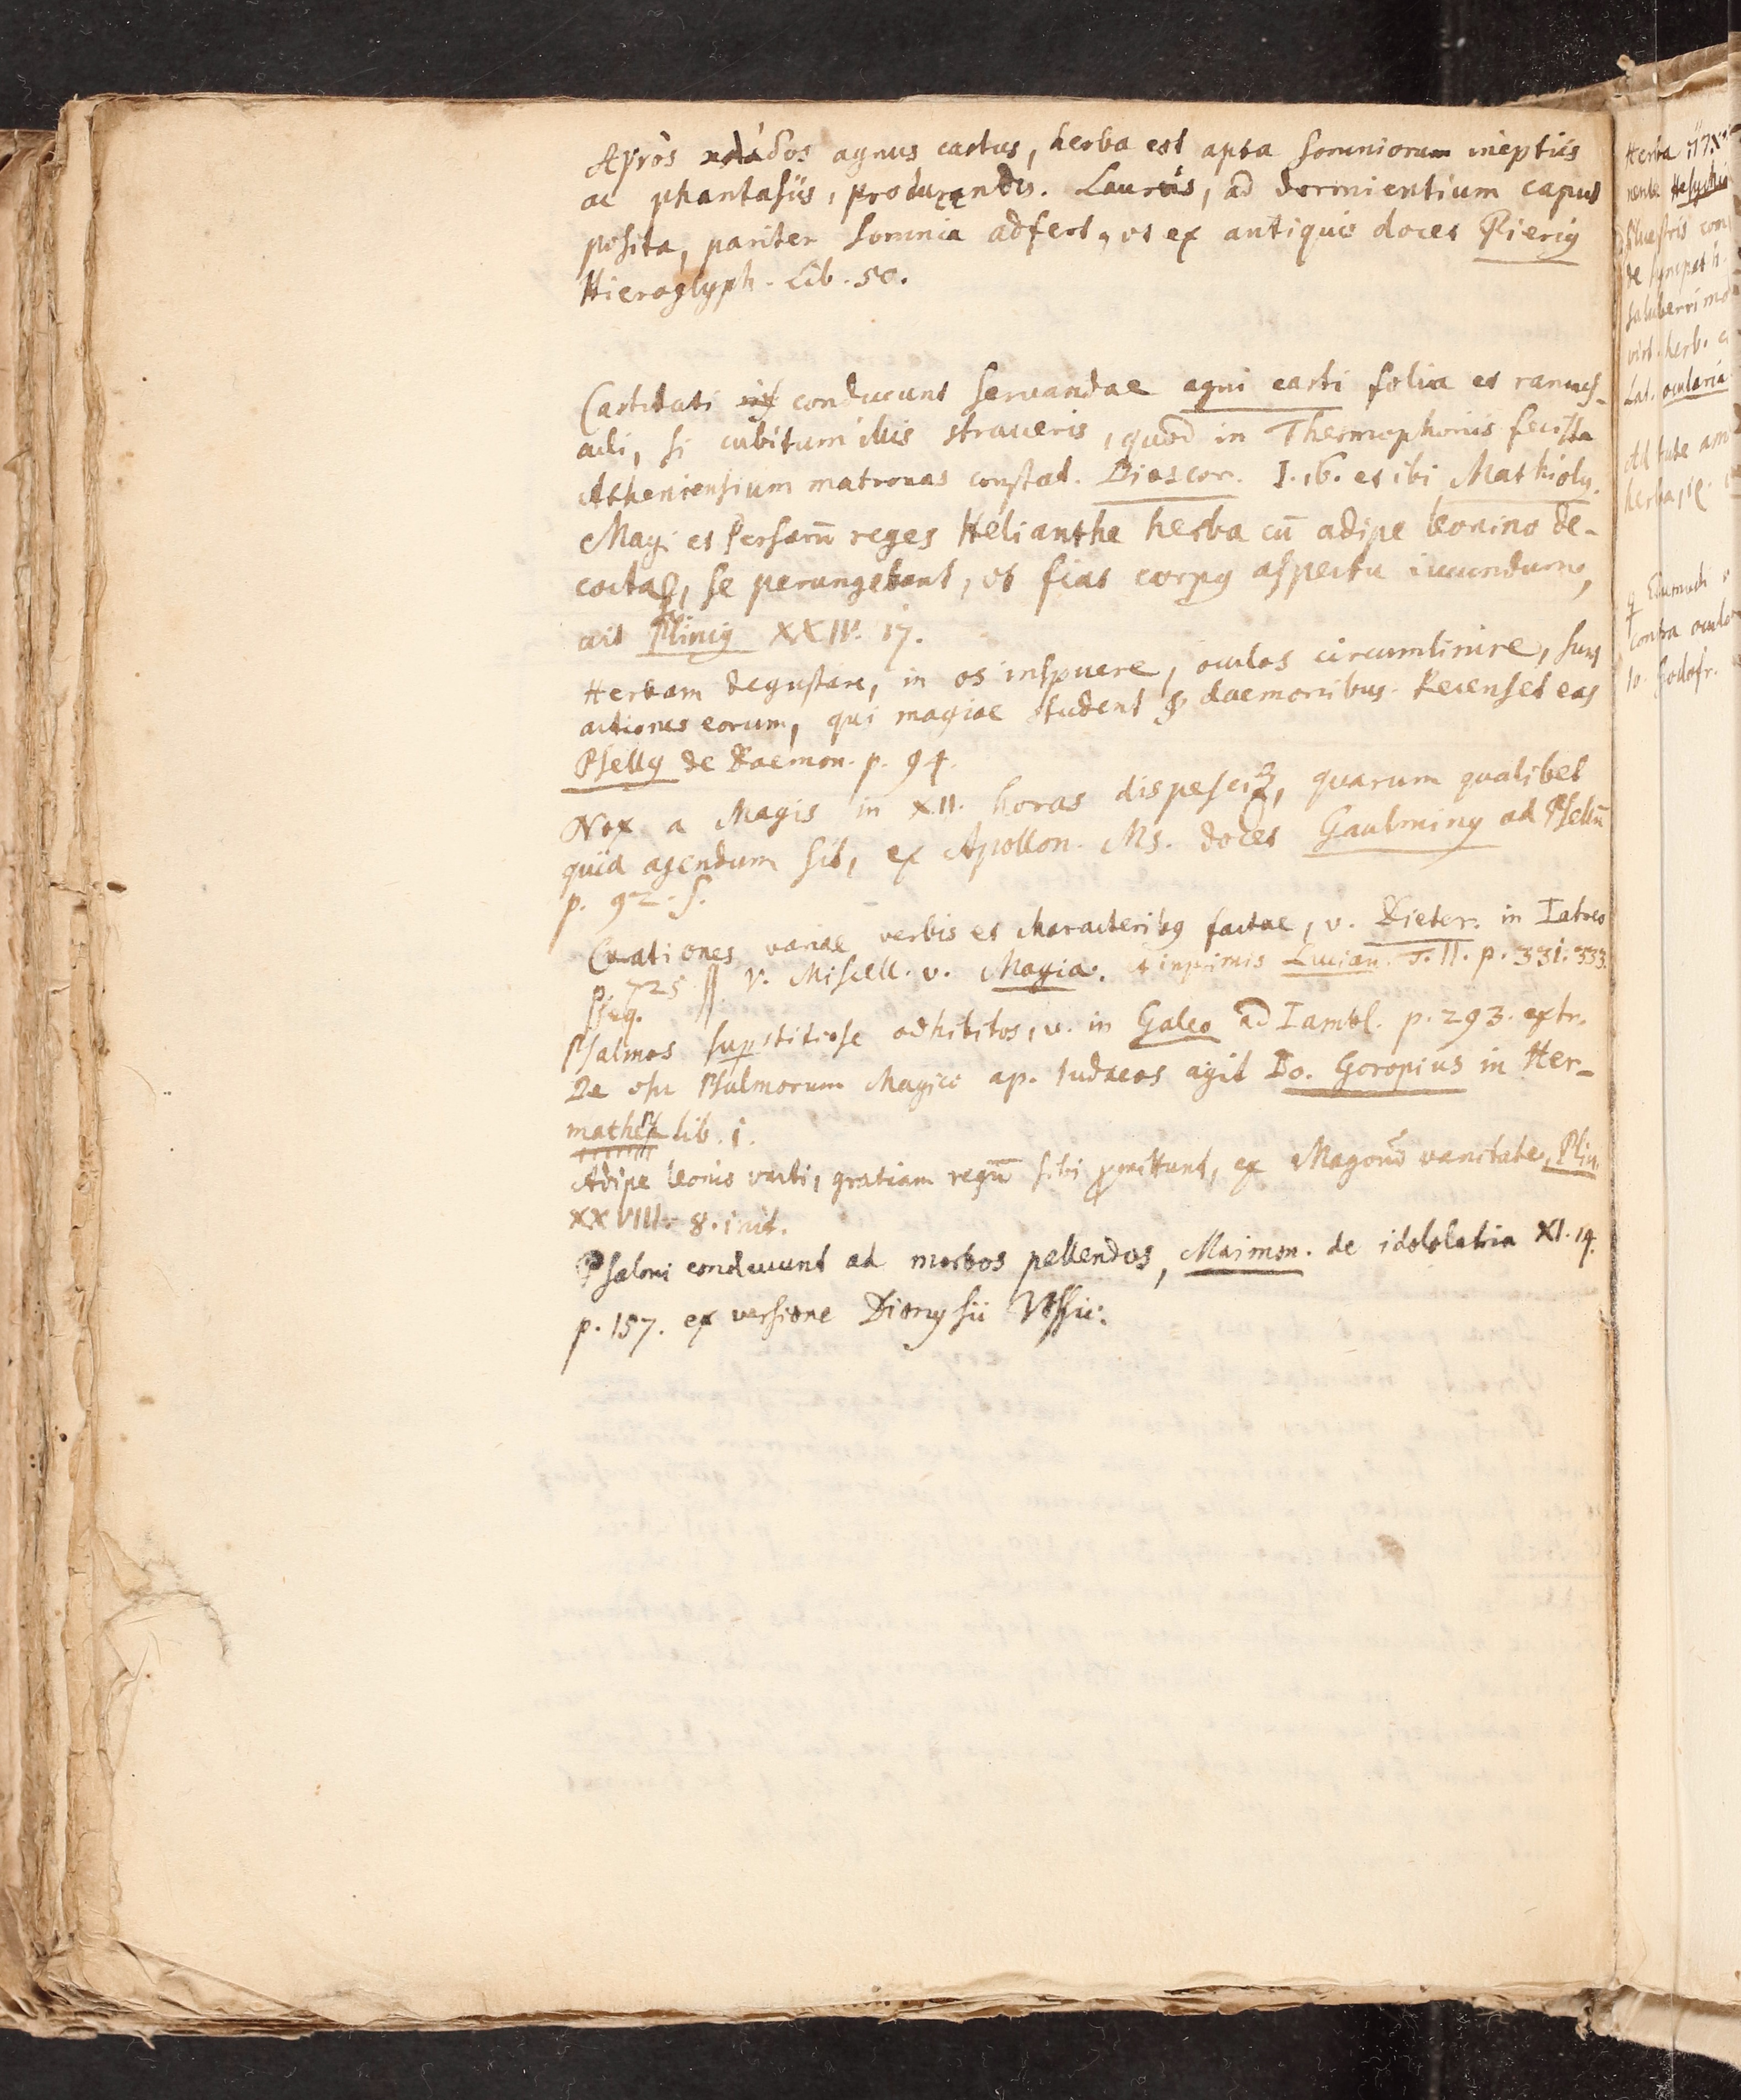 Ἁγνὸς κλάδος agnus castus, herba est apta somniorum ineptiis
ac phantasiis, producendis. Laurus, ad dormientium caput
posita, pariter somnia adfert, ut ex antiquis docet Pieriꝰ
Hieroglyph. Lib. 50.
Castitati conducunt servandae agni casti folia et ramus-
culi, si cubitum illis straveris, quod in Thesmophoriis
Atheniensium matronas constat. Dioscor. I. 16. et ibi Mathiolꝰ.
Magi et Persarū reges Helianthe herba cū adipe leonino de-
cocta, se perungebant, ut fiat corpꝰ aspectu iucundum,
ait Pliniꝰ XXIV. 17.
Herbam degustare, in os inspuere, oculos circumlinire, sunt
actiones eorum, qui magiae student daemonibus. Recenset eas
Psellꝰ de Daemon. p. 94.
Nox a Magis in XII. horas dispesci, quarum qualibet
quid agendum sit, ex Apollon. Ms. docet Gaulminꝰ ad Psellū
p. 92. s.
Curationes variae verbis et characteribꝰ factae, v. Dieter. in Iatreo
p. 725 || V. Miscell. v. Magia. et inprimis Lucian. T. II. p. 331. 333.
seq.
Psalmos superstitiose adhibitos, v. in Galeo ad Iambl. p. 293. extr.
De usu Psalmorum Magico ap. Iudaeos agit Io. Goropius in Her-
mathena lib. 1.
Adipe leonis uncti, gratiam regū sibi promittunt, ex Magorū vanitate, Plin.
XXVIII. 8. init.
Psalmi conducunt ad morbos pellendos, Maimon. de idololatria XI. 14.
p. 157. ex versione Dionysii Vossii.
Herba
nente Hesychio
de sympath.
saluberrimo
virt. herb.
Lat. ocularia
herba
contra
Io. Godofr.